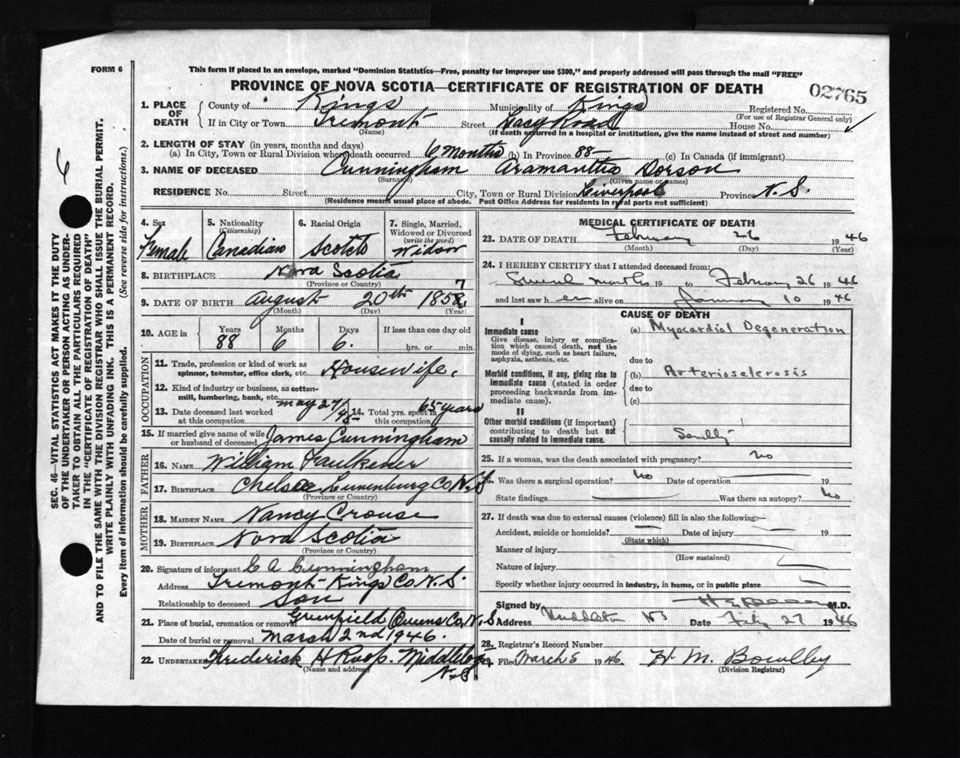 FORM 6
This form if placed in an envelope, marked "Dominion Statistics—Free, penalty for improper use $300," and properly addressed will pass through the mail "FREE"
PROVINCE OF NOVA SCOTIA—CERTIFICATE OF REGISTRATION OF DEATH
02765
1. PLACE OF DEATH
County of Kings Municipality of Kings Registered No.
(For use of Registrar General only)
If in City or Town Tremont Street Vacy Road House No.
(Name) (If death occurred in a hospital or institution, give the name instead of street and number)
2. LENGTH OF STAY (in years, months and days)
(a) In City, Town or Rural Division where death occurred 6 Months (b) In Province 88— (c) In Canada (if immigrant)
3. NAME OF DECEASED Cunningham Aramantha Dorson
(Surname) (Given name or names)
RESIDENCE No. Street City, Town or Rural Division Liverpool Province N.S.
(Residence means usual place of abode. Post Office Address for residents in rural parts not sufficient)
4. Sex Female
5. Nationality (Citizenship) Canadian
6. Racial Origin Scotch
7. Single, Married, Widowed or Divorced (write the word) Widow
8. BIRTHPLACE Nova Scotia
(Province or Country)
9. DATE OF BIRTH August 20th 1858 7
(Month) (Day) (Year)
10. AGE in Years Months Days If less than one day old
88 6 6. hrs. or min.
OCCUPATION
11. Trade, profession or kind of work as spinner, teamster, office clerk, etc. Housewife.
12. Kind of industry or business, as cotton-mill, lumbering, bank, etc.
13. Date deceased last worked at this occupation May 27/
14. Total yrs. spent in this occupation 65 years
15. If married give name of wife or husband of deceased James Cunningham
FATHER
16. NAME William Faulkener
17. BIRTHPLACE Chelsea Lunenburg Co. N.S
(Province or Country)
MOTHER
18. MAIDEN NAME Nancy Crouse
19. BIRTHPLACE Nova Scotia
(Province or Country)
20. Signature of informant C A Cunningham
Address Tremont Kings Co N.S.
Relationship to deceased Son
21. Place of burial, cremation or removal Greenfield Queens Co, N.S
Date of burial or removal March 2nd 1946.
22. UNDERTAKER Frederick H Roop. Middleton N.S
(Name and address)
MEDICAL CERTIFICATE OF DEATH
23. DATE OF DEATH February 26 1946
(Month) (Day) (Year)
24. I HEREBY CERTIFY that I attended deceased from:
Several months 19 to February 26 1946
and last saw h er alive on January 10 1946
CAUSE OF DEATH
I
Immediate cause
Give disease, injury or complication which caused death, not the mode of dying, such as heart failure, asphyxia, asthenia, etc.
(a) Myocardial Degeneration
due to
Morbid conditions, if any, giving rise to immediate cause (stated in order proceeding backwards from immediate cause).
(b) Arteriosclerosis
due to
(c)
II
Other morbid conditions (if important) contributing to death but not causally related to immediate cause.
Senility
25. If a woman, was the death associated with pregnancy? no
26. Was there a surgical operation? No Date of operation 19
State findings Was there an autopsy? No
27. If death was due to external causes (violence) fill in also the following:—
Accident, suicide or homicide? Date of injury 19
(State which)
Manner of injury
(How sustained)
Nature of injury
Specify whether injury occurred in industry, in home, or in public place
Signed by M.D.
Address Middleton NS Date Feby 27 1946
28. Registrar's Record Number
Filed March 5 1946 H. M. Bowlby
(Division Registrar)
SEC. 46—VITAL STATISTICS ACT MAKES IT THE DUTY
OF THE UNDERTAKER OR PERSON ACTING AS UNDER-
TAKER TO OBTAIN ALL THE PARTICULARS REQUIRED
IN THE "CERTIFICATE OF REGISTRATION OF DEATH"
AND TO FILE THE SAME WITH THE DIVISION REGISTRAR WHO SHALL ISSUE THE BURIAL PERMIT.
WRITE PLAINLY WITH UNFADING INK. THIS IS A PERMANENT RECORD.
Every item of information should be carefully supplied. (See reverse side for instructions.)